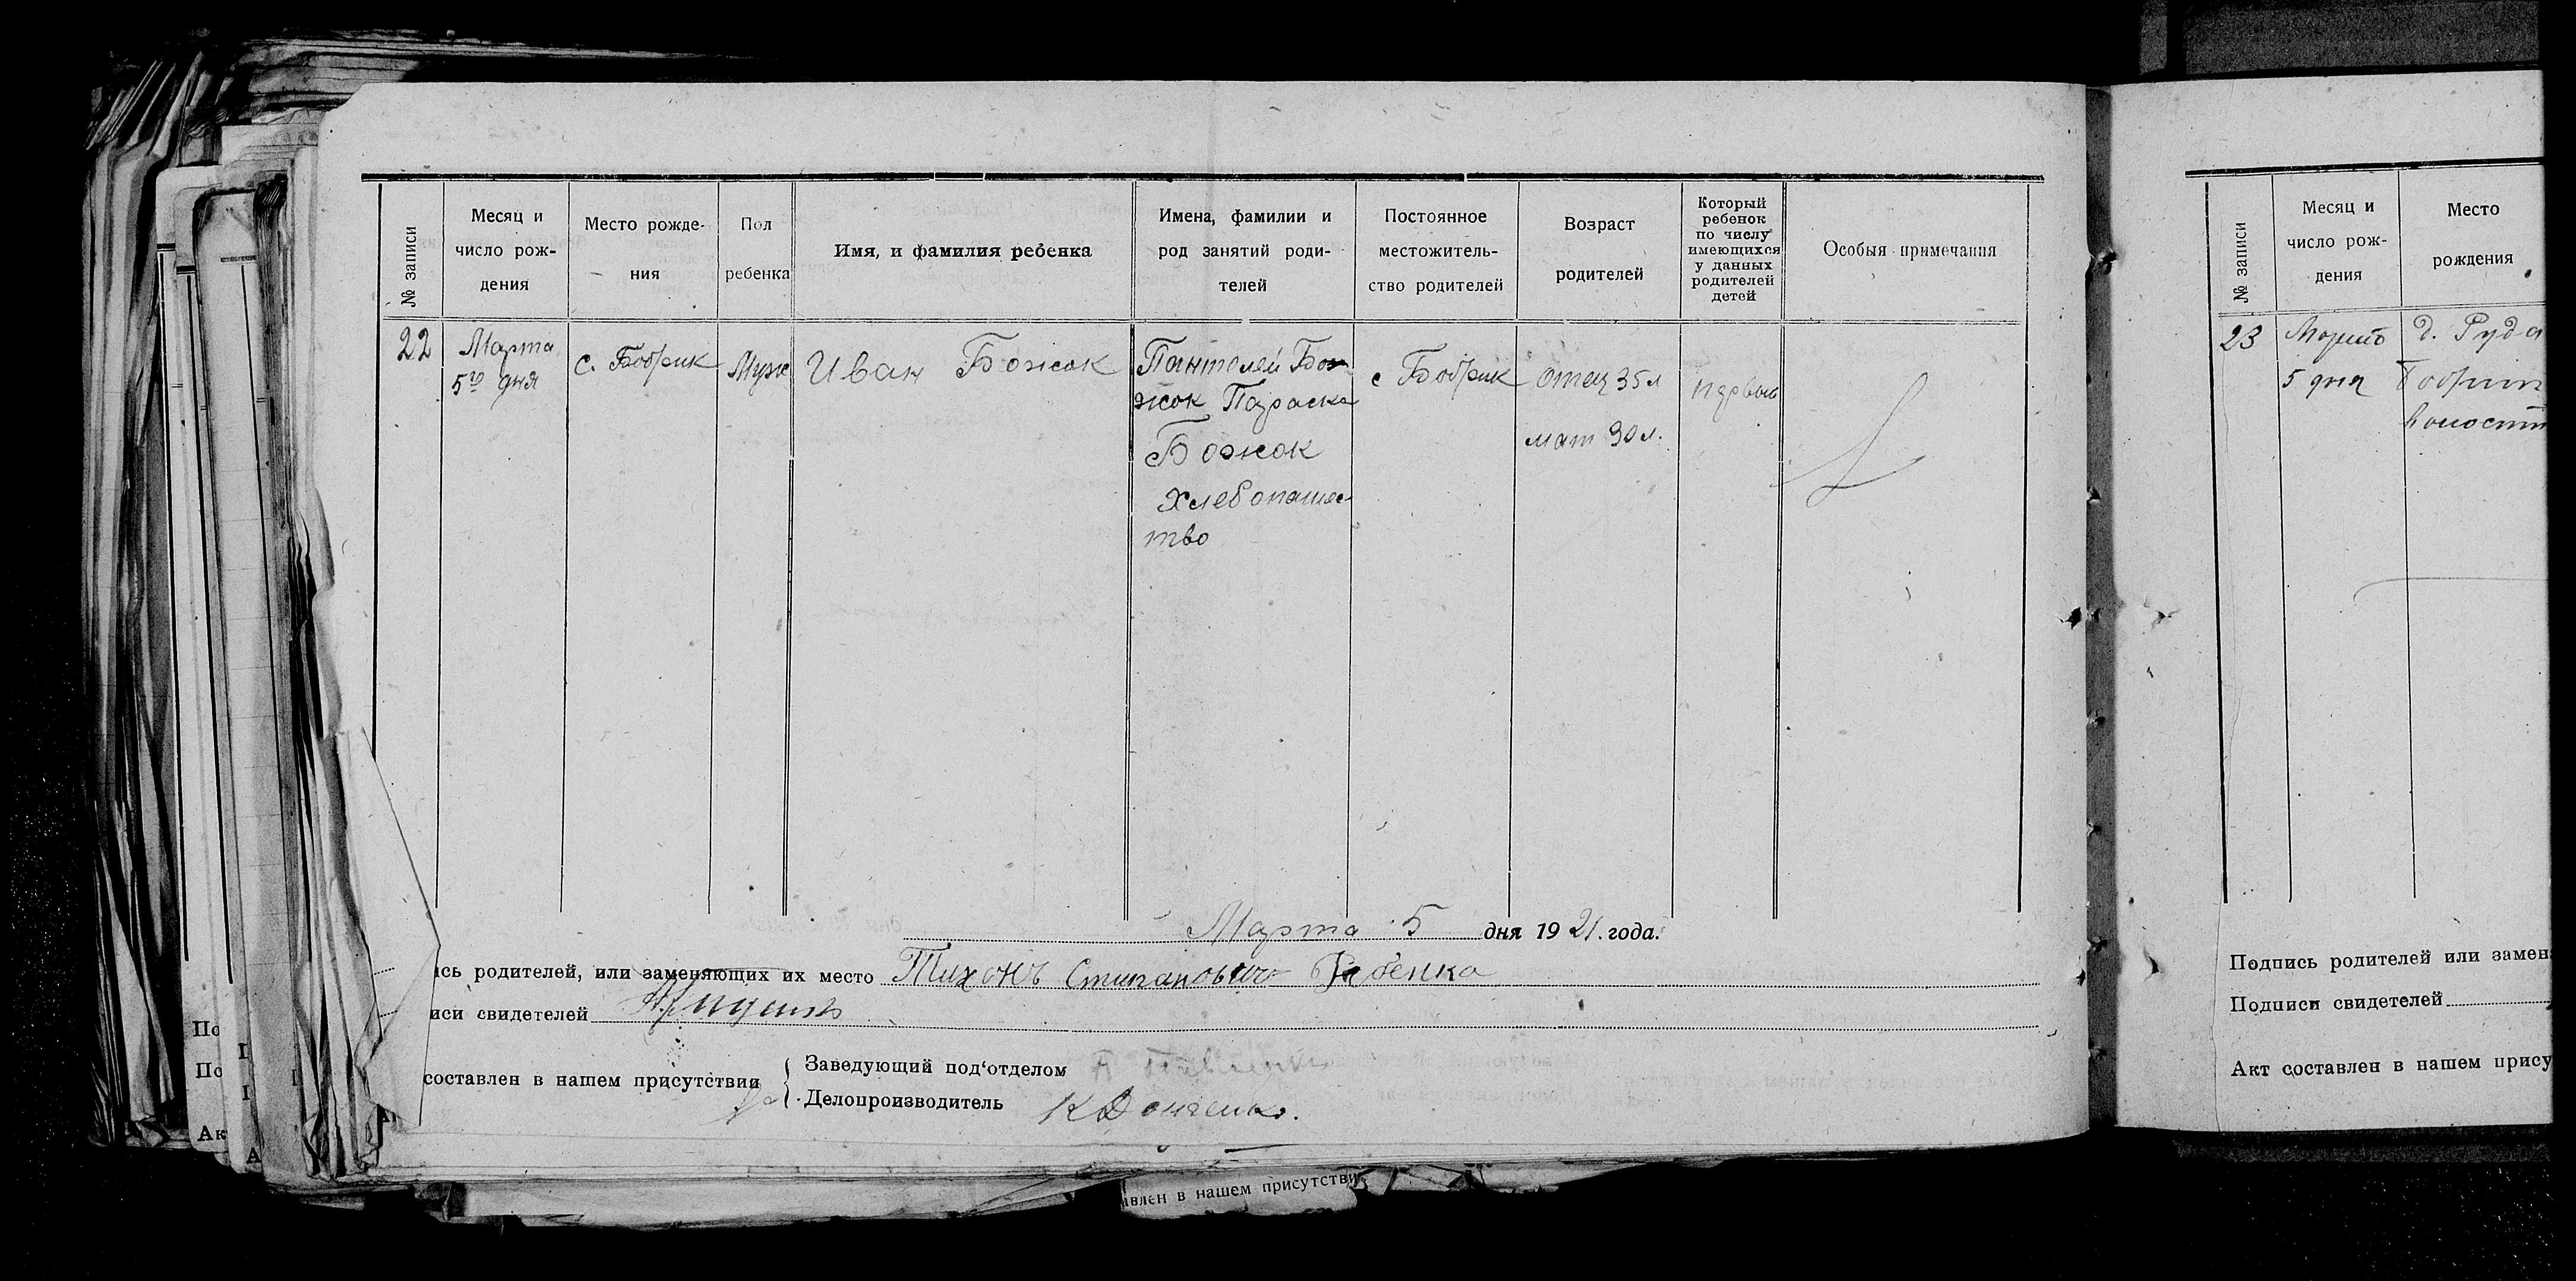 № записи
Месяц и
число рож-
дения
Место рожде-
ния
Пол
ребенка
Имя, и фамилия ребенка
Имена, фамилии и
род занятий роди-
телей
Постоянное
местожитель-
ство родителей
Возраст
родителей
Который
ребенок
по числу
имеющихся
у данных
родителей
детей
Особыя примечания
22
Марта
5го дня
с. Бобрик
Муж
Иван Божок
Пантелей Бо-
жок Параска
Божок
Хлебопашес-
тво
с Бобрик
Отец 35 л
мат 30 л.
первый
Марта 5 дня 1921. года.
ись родителей, или заменяющих их место Тихонъ Стипановичъ
иси свидетелей
составлен в нашем присутствии
Заведующий под‘отделом
Делопроизводитель
К Донченко.
№ записи
Месяц и
число рож-
дения
Место
рождения
23
Марта
5 дня
д. Руда
Подпись родителей или замен
Подписи свидетелей
Акт составлен в нашем прису
По
По
Ак
авлен в нашем присутстви